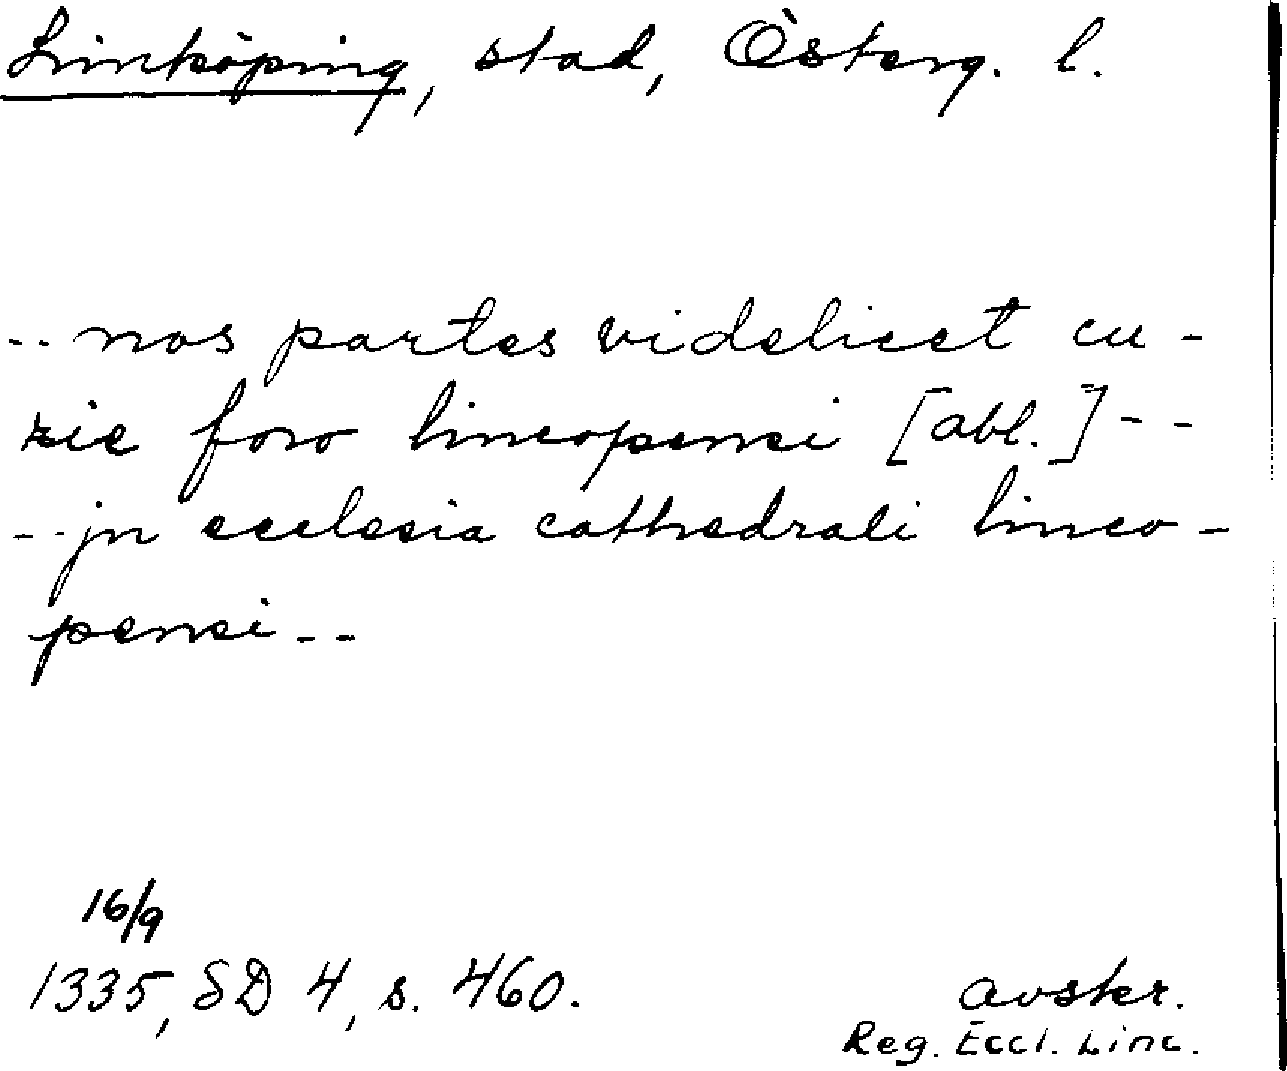 Linköping, stad, Österg. l.
-- nos partes videlicet cu-
rie foro lincopensi [abl.] --
-- jn ecclesia cathedrali linco-
pensi --
16/9
1335, SD 4, s. 460.
avskr.
Reg. Eccl. Linc.